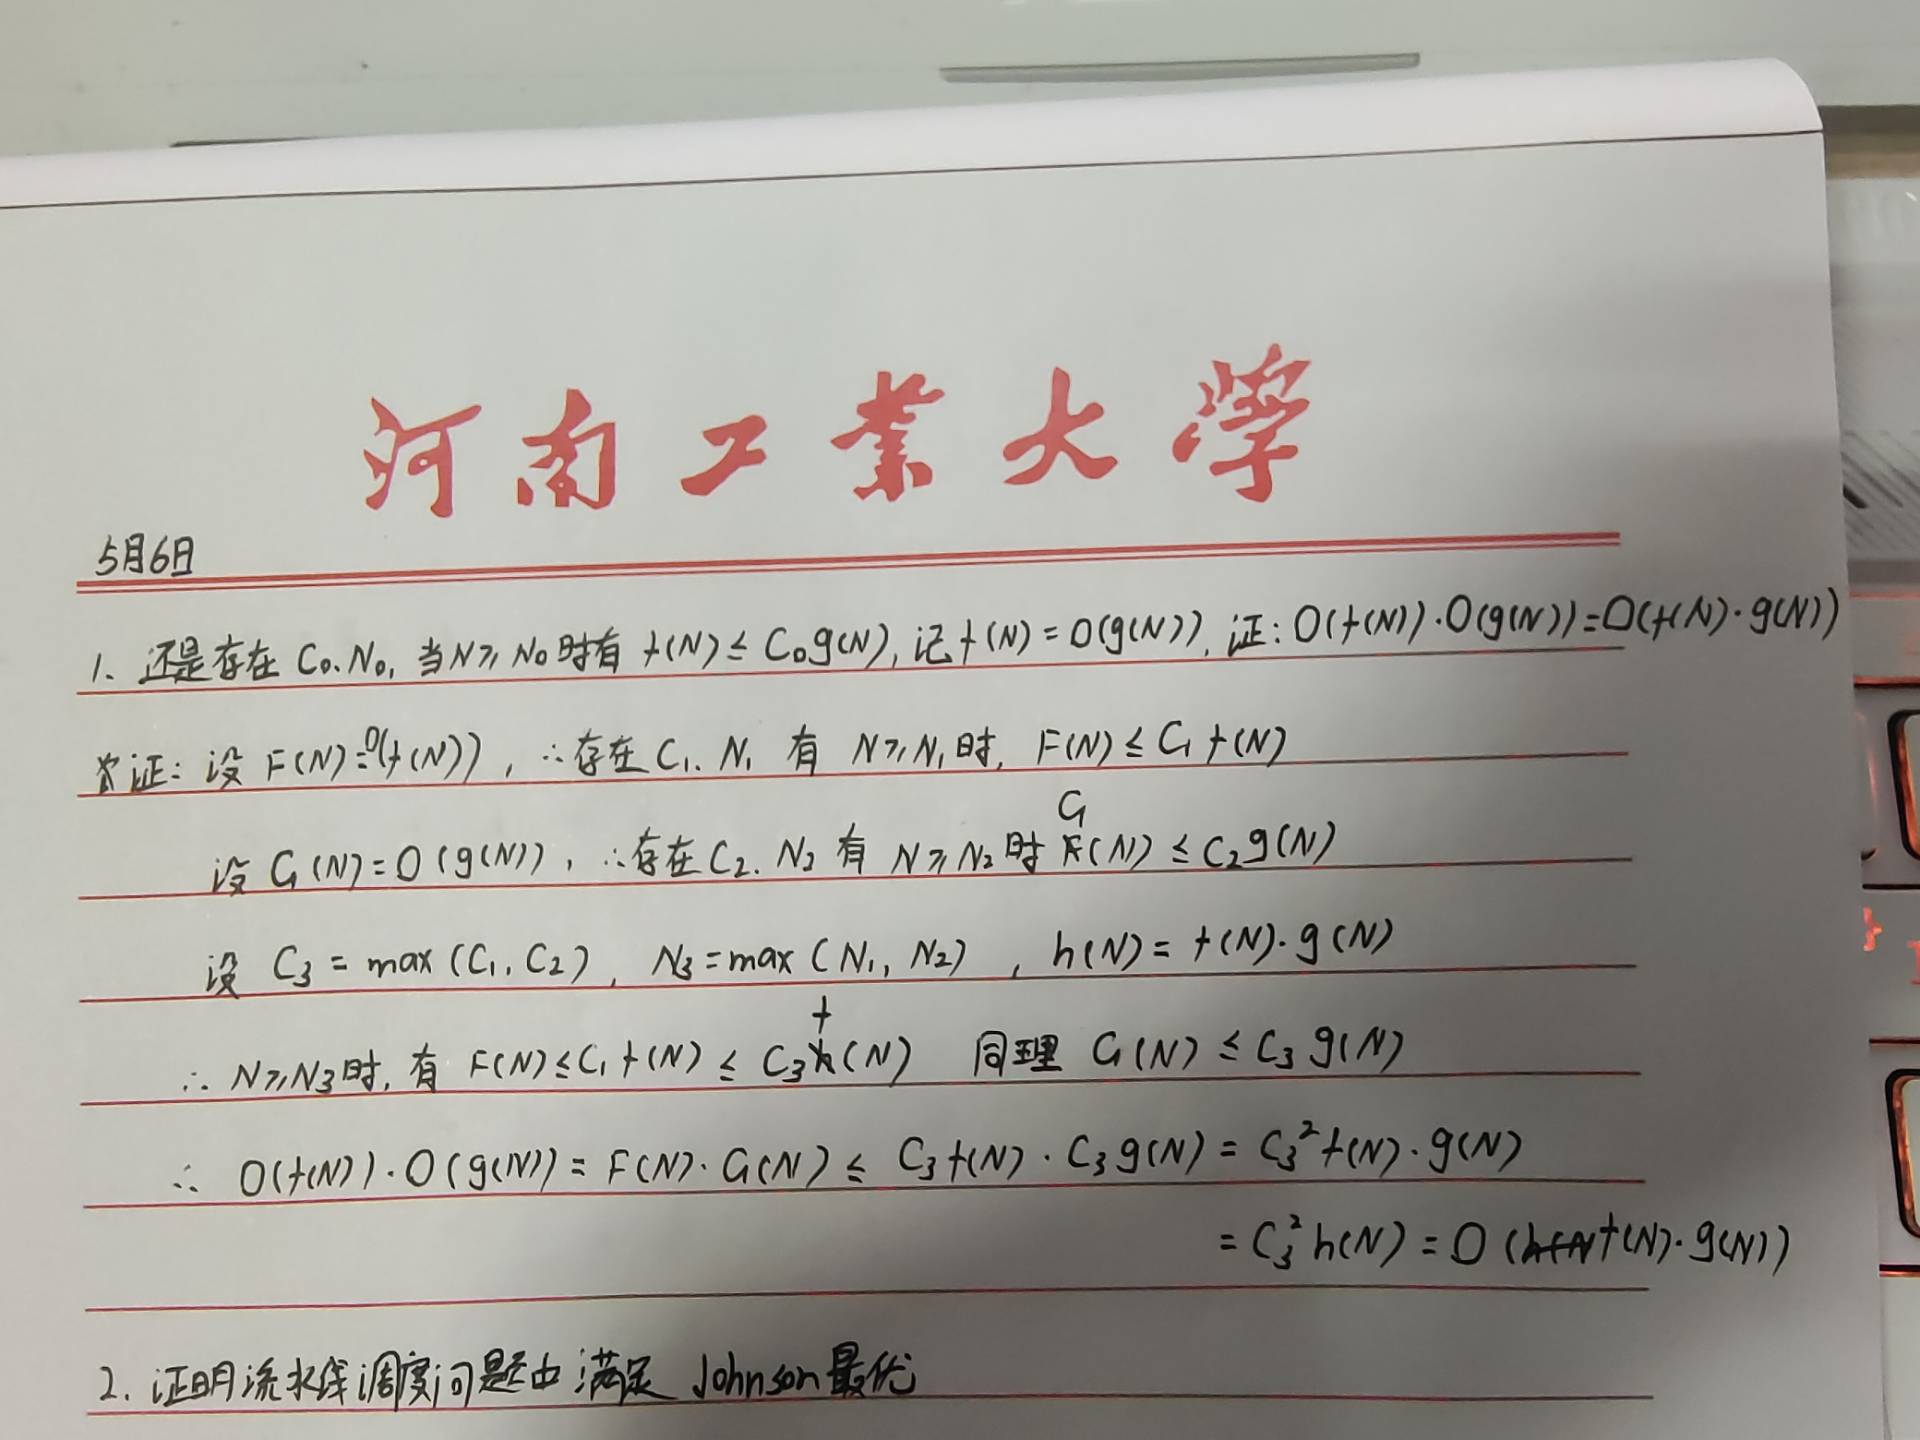 河南工业大学
5月6日
1. 还是存在 C₀. N₀, 当N≥N₀时有 f(N) ≤ C₀g(N), 记 f(N) = O(g(N)), 证: O(f(N))·O(g(N))=O(f(N)·g(N))
证: 设 F(N)=O(f(N)), ∴存在 C₁. N₁ 有 N≥N₁时, F(N) ≤ C₁ f(N)
设 G(N)=O(g(N)), ∴存在C₂. N₂ 有 N≥N₂时 G(N) ≤ C₂g(N)
设 C₃ = max(C₁, C₂), N₃=max(N₁, N₂), h(N) = f(N)·g(N)
∴ N≥N₃时, 有 F(N)≤C₁f(N) ≤ C₃f(N) 同理 G(N) ≤ C₃ g(N)
∴ O(f(N))·O(g(N)) = F(N)·G(N) ≤ C₃f(N)·C₃g(N) = C₃²f(N)·g(N)
= C₃²h(N) = O(f(N)·g(N))
2. 证明流水线调度问题中满足 Johnson最优